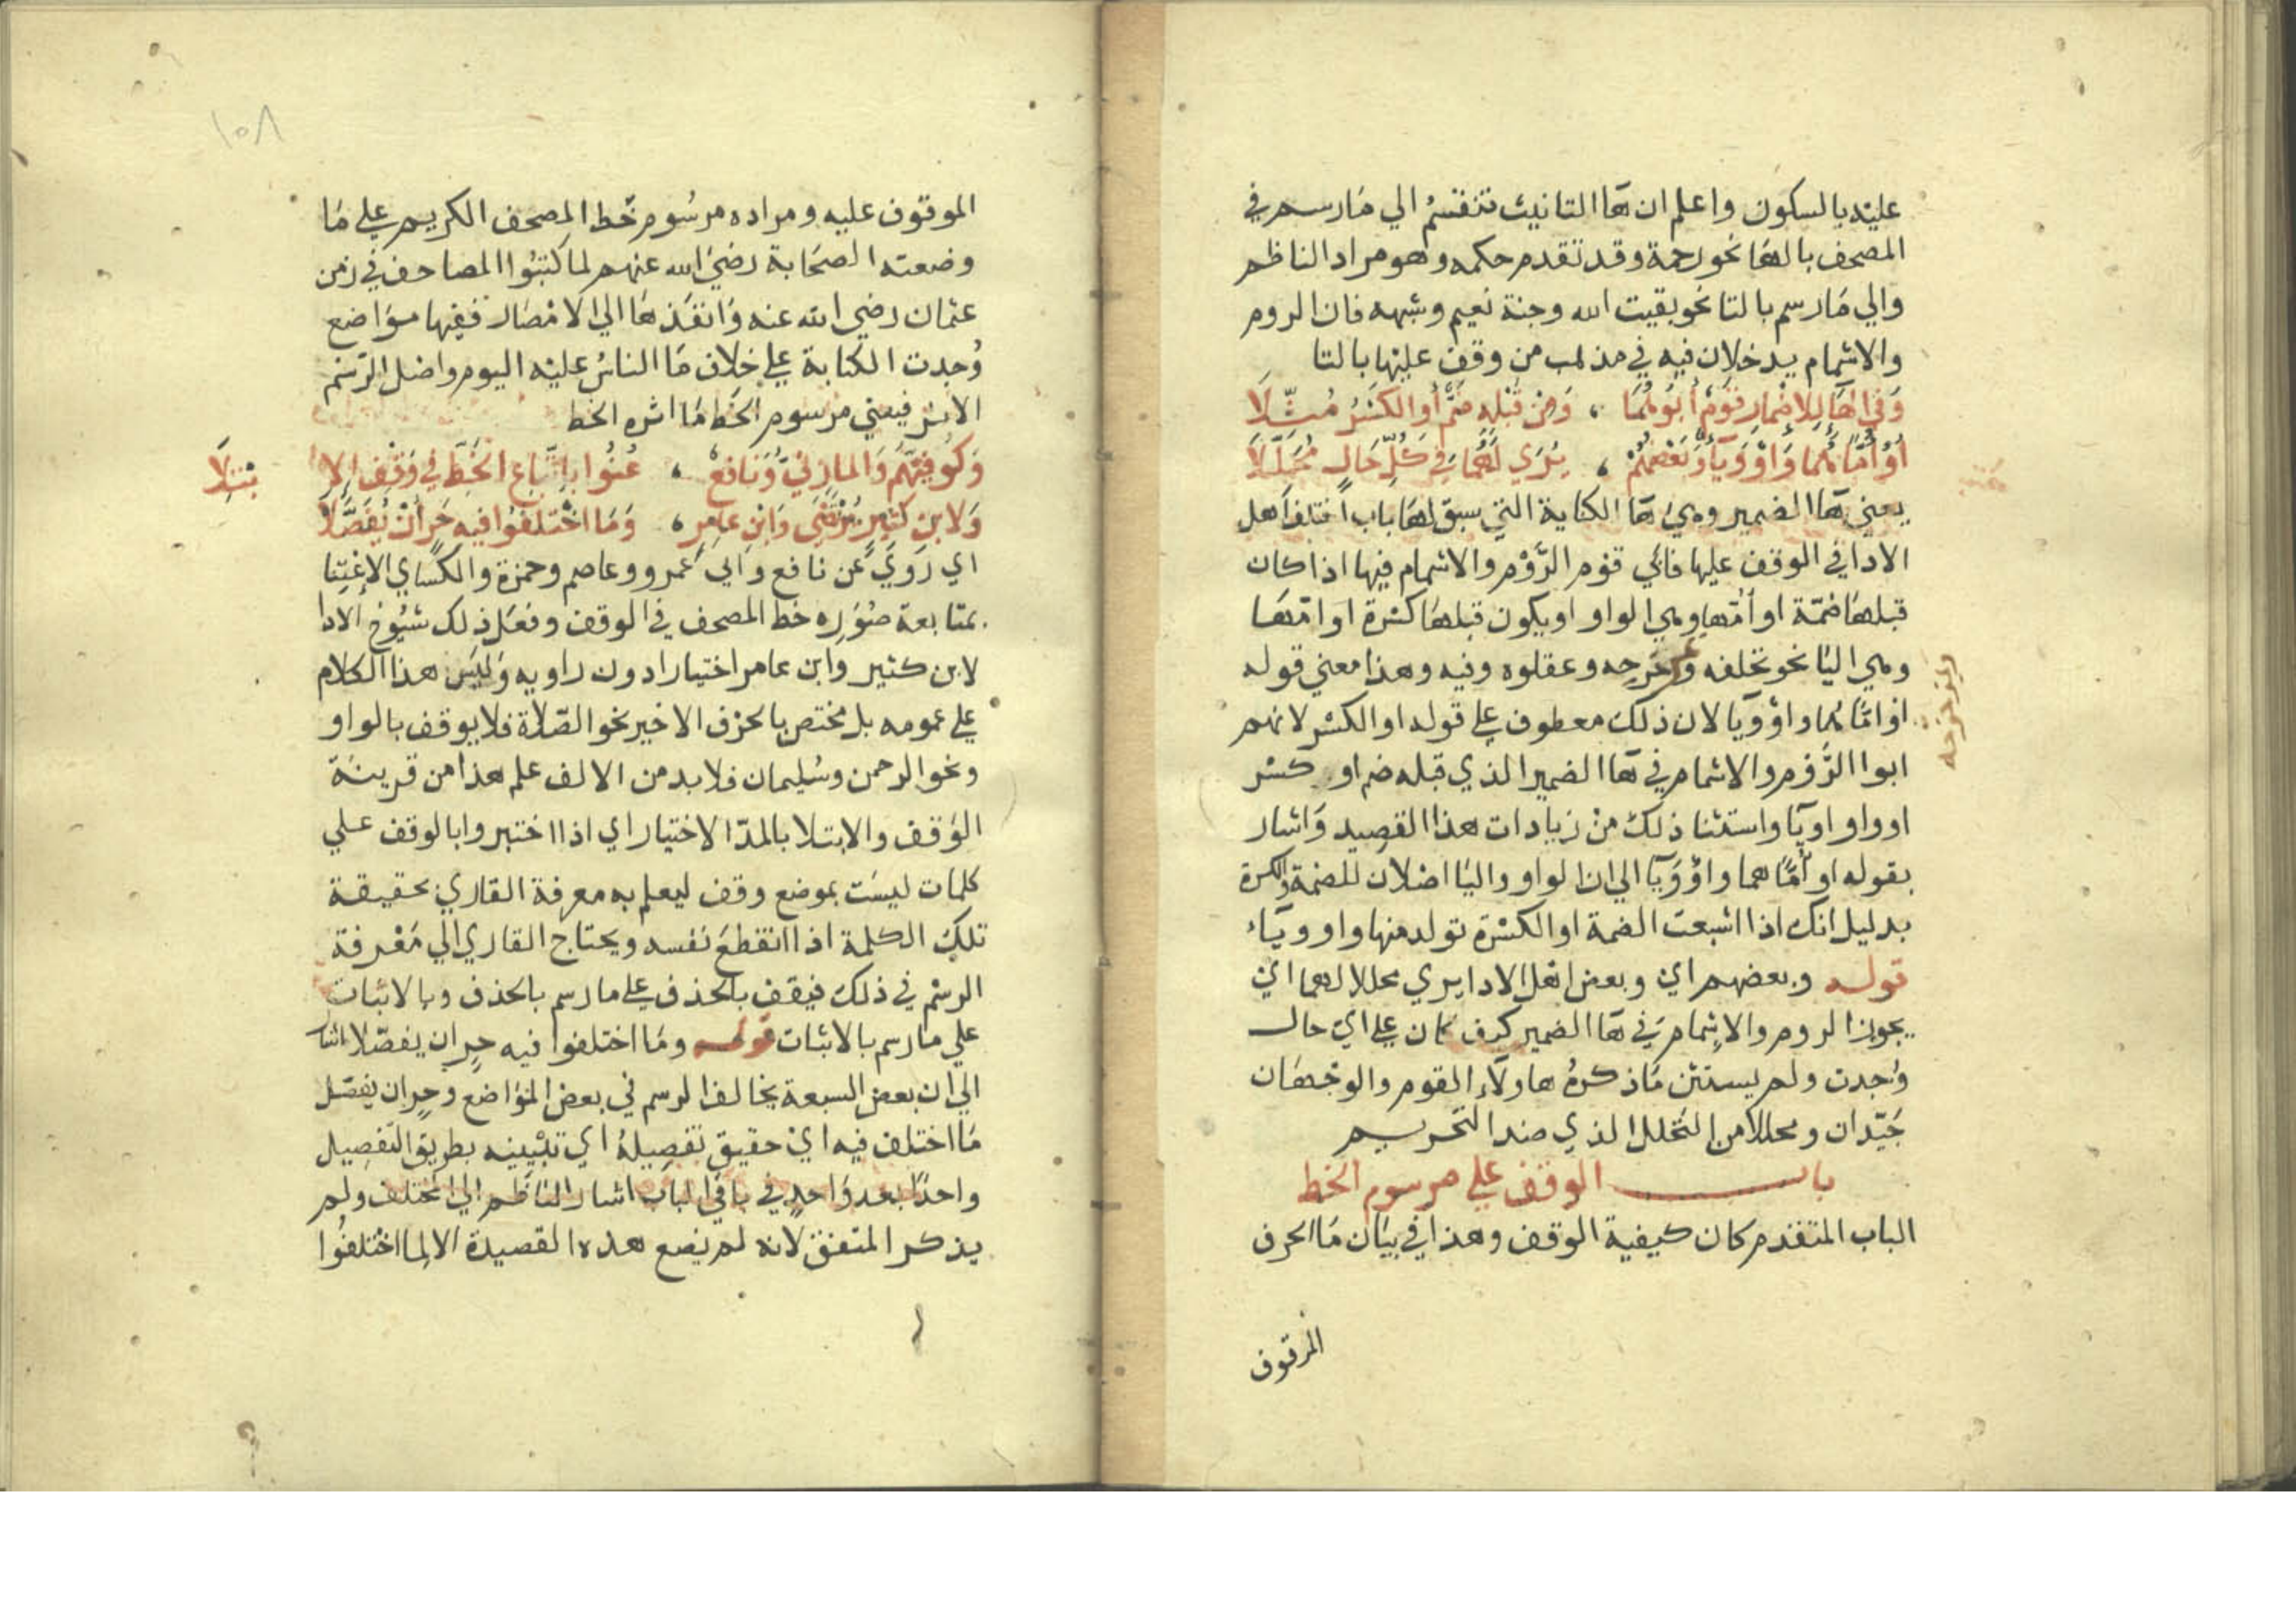 عليه بالسكون واعلم ان هاالتانيث تنقسم الي مارسم في
المصحف بالها نحو رحمة وقد تقدم حكمه وهو مراد الناظم
والي مارسم بالتا نحو بقيت الله وجنة نعيم وشبهه فان الروم
والاشمام يدخلان فيه في مذهب من وقف عليها بالتا
وَفي الهَاءِ لِلاِضْمارِ قَوْمٌ أبَوْهُمَا ، وَمِنْ قَبْلِهِ ضَمٌّ أوِ الكَسْرُ مُثِّلَا
أوُ اُمَّا هُما وَاوٌ وَيَاءٌ وَبَعْضُهُمْ ، يُرَي لَهُمَا في كُلِّ حَالٍ مُحَلِّلَا
يعني هاالضمير وهي ها الكناية التي سبق لها باب اختلف اهل
الادا في الوقف عليها فابي قوم الرَّوْم والاشمام فيها اذا كان
قبلها ضمّة او اُمّها وهي الواو او يكون قبلها كسْرة او امّها
وهي اليا نحو تخلفه وعقلوه وفيه وهذا معني قوله
او امّا هما واوٌ ويا لان ذلك معطوف علي قوله او الكسْر لانهم
ابوا الرَّوْم والاشمام في هاالضمير الذي قبله ضم او كسْر
او واو او يا واستثنا ذلك منْ زيادات هذا القصيد وَاشار
بقوله او اُمّا هما واوٌ وَيا الي ان الواو واليا اصْلان للضمة والكسرة
بدليل انك اذا اشبعت الضمة او الكسْرة تولد منها واو وياء
قوله وبعضهم اي وبعض اهل الادا يري محللا لهما اي
يجوز الروم والاشمام في هاالضمير كيف كان علي اي حال
وُجدت ولم يستثن مَا ذكرهُ هاولاء القوم والوجْهان
جَيّدان ومحللا من التحلل الذي ضد التحريم
باب الوقف علي مرسوم الخط
الباب المتقدم كان كيفية الوقف وهذا في بيَان مَا الحرف
الموقوف
الموقوف عليه ومراده مرسُوم خَط المصحف الكريم علي مَا
وضعته الصحَابة رضيَ الله عنهم لما كتبُوا المصاحف في زمن
عثمان رضي الله عنه وَانفَذهَا الي الامْصَار ففيها موَاضع
وُجدت الكتابة علي خلاف مَا الناسُ عليْه اليوم واصْل الرّسْم
الاثر فيعني مرسوم الخَط مَا اثره الخط
وَكُوفِيُّهُمْ وَالمازِنيُّ وَنَافِعٌ ، عُنُوا باتِّبَاعِ الخَطِّ في وَقْفِ الِا بْتِلَا
وَلابنِ كثيرٍ يُرْتَضَى وَابنِ عامِرٍ ، وَمَا اخْتَلَفُوا فيهِ حَرٍ أنْ يُفَصَّلَا
اي رَوَيَ عَن نافع وابي عَمرو وعاصم وحمزة والكسَاي الاعْتِنا
بمتابعة صُورة خط المصحف في الوقف وفعَل ذلك شُيُوخ الادا
لابن كثير وَابن عامر اختيارا دون راويه وَليسَ هذا الكلام
علي عمومه بل مختص بالحرف الاخير نحو الصّلاة فلا يوقف بالواو
ونحو الرحمن وسُليمان فلا بد من الالف علم هذا من قرينَة
الوَقف والابتلا بالمدّ الاختيار اي اذا اختبروا بالوقف علي
كلمات ليسَت بموضع وقف ليعلم به معرفة القاري بحقيقة
تلك الكلمة اذا انقطعَ نَفسه ويحتاج القاري الي مَعْرفة
الرسْم في ذلك فيَقف بالحذف علي مارسم بالحذف وبالاثبات
علي مارسم بالاثبَات قوله ومَا اختلفوا فيه حرٍ ان يفصّلا اشا
الي ان بعض السبعة يخالف الرسم في بعض الموَاضع وحرٍ ان يفصّل
مَا اختلف فيه ايْ حقيق تفصيلهُ اي تبْيينه بطريق التفصِيل
واحدًا بعد وَاحدٍ في باقي الباب اشار الناظم الي المختلف ولم
يذكر المتفق لانه لم يَضع هذه القصيدة الا لما اختلفُوا